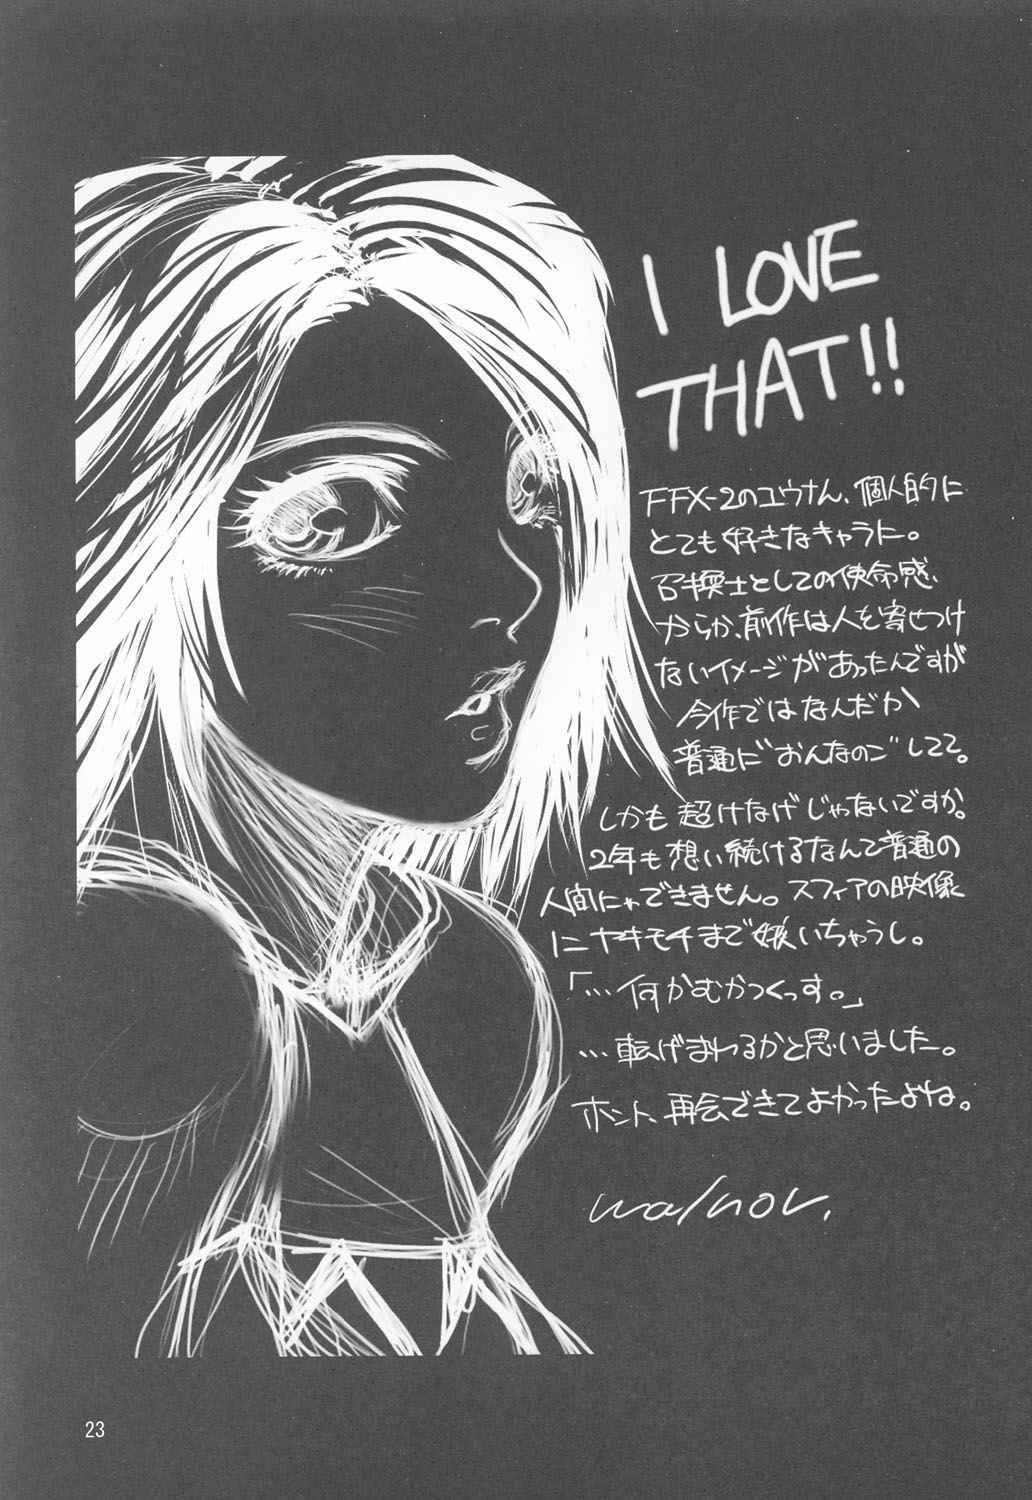 I LOVE
THAT!!
FFX-2のユウナん、個人的に
とても好きなキャラに。
召換士としての使命感、
からか、前作は人を寄せつけ
ないイメージがあったんですが
今作ではなんだか
普通に"おんなのこ"してて。
しかも超けなげじゃないですか。
2年も想い続けるなんて普通の
人間にゃできません。スフィアの映像
にヤキモチまで嫉いちゃうし。
「…何かむかつくっす。」
…転げまわるかと思いました。
ホント、再会できてよかったよね。
walnov.
23